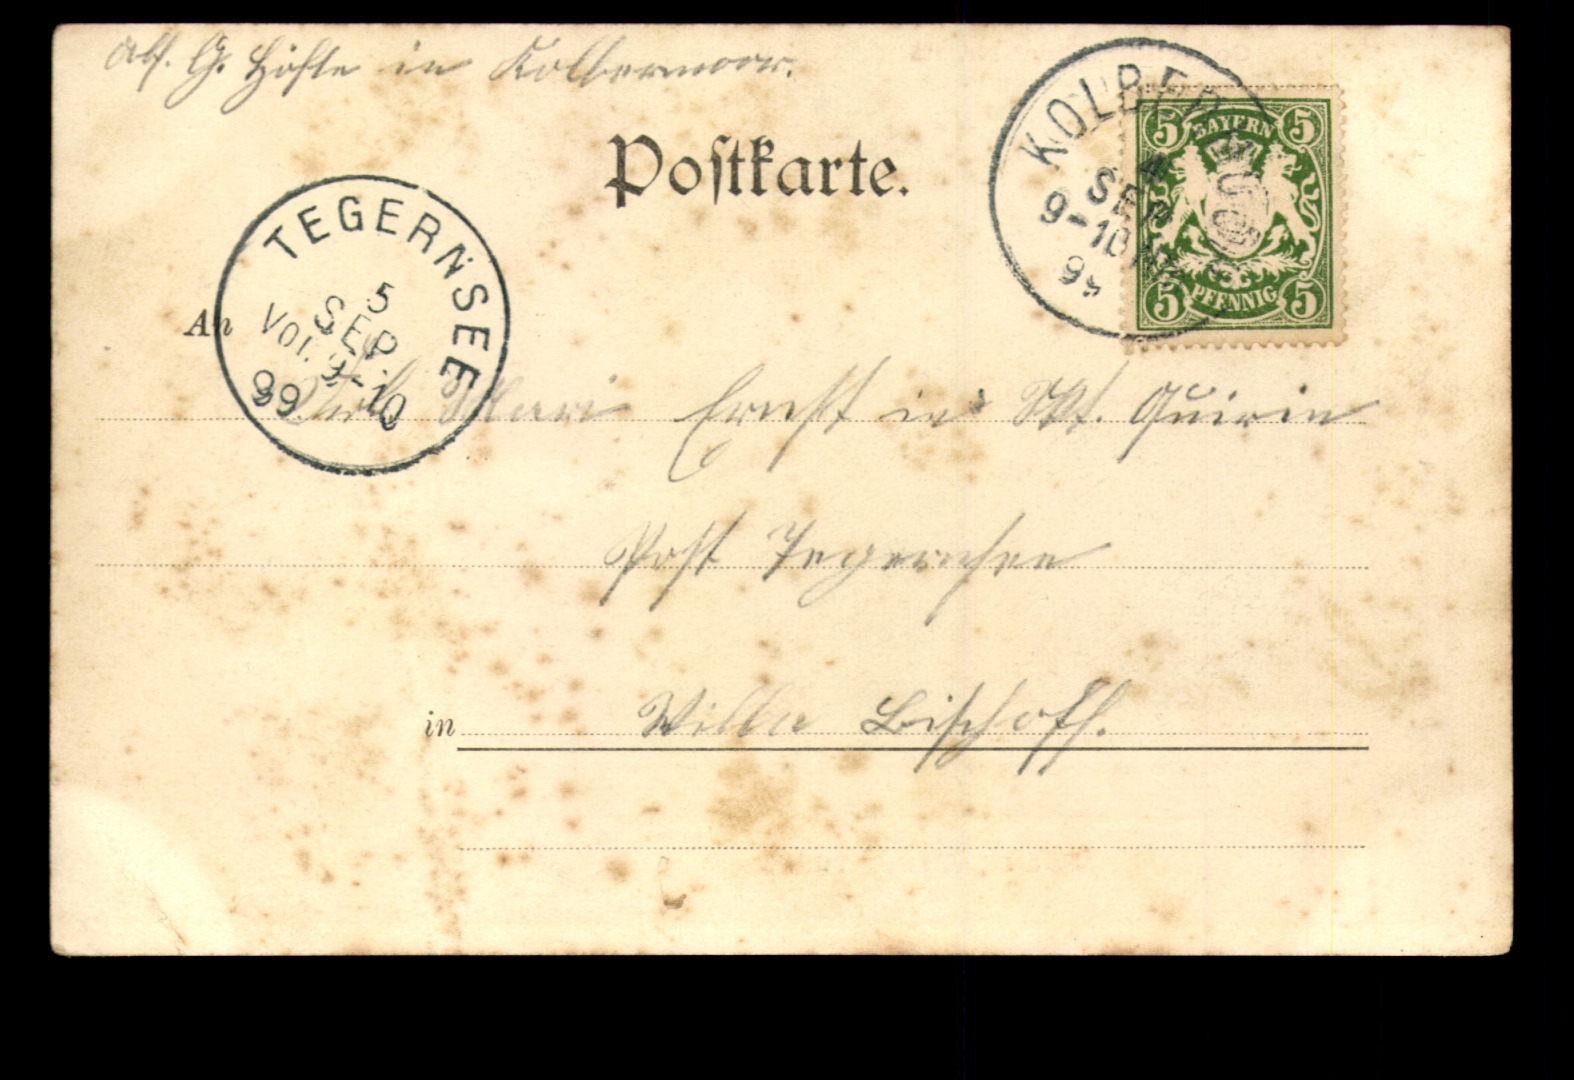 Abs. G. Höfte in Kolbermoor.
Postkarte.
KOLBERMOOR
4
SEP
9-10
99
5 BAYERN 5
5 PFENNIG 5
TEGERNSEE
5
SEP
Vor. 9-10
99
An
Mari Ernst in Skt. Quirin
Post Tegernsee
in Villa Bischoff.